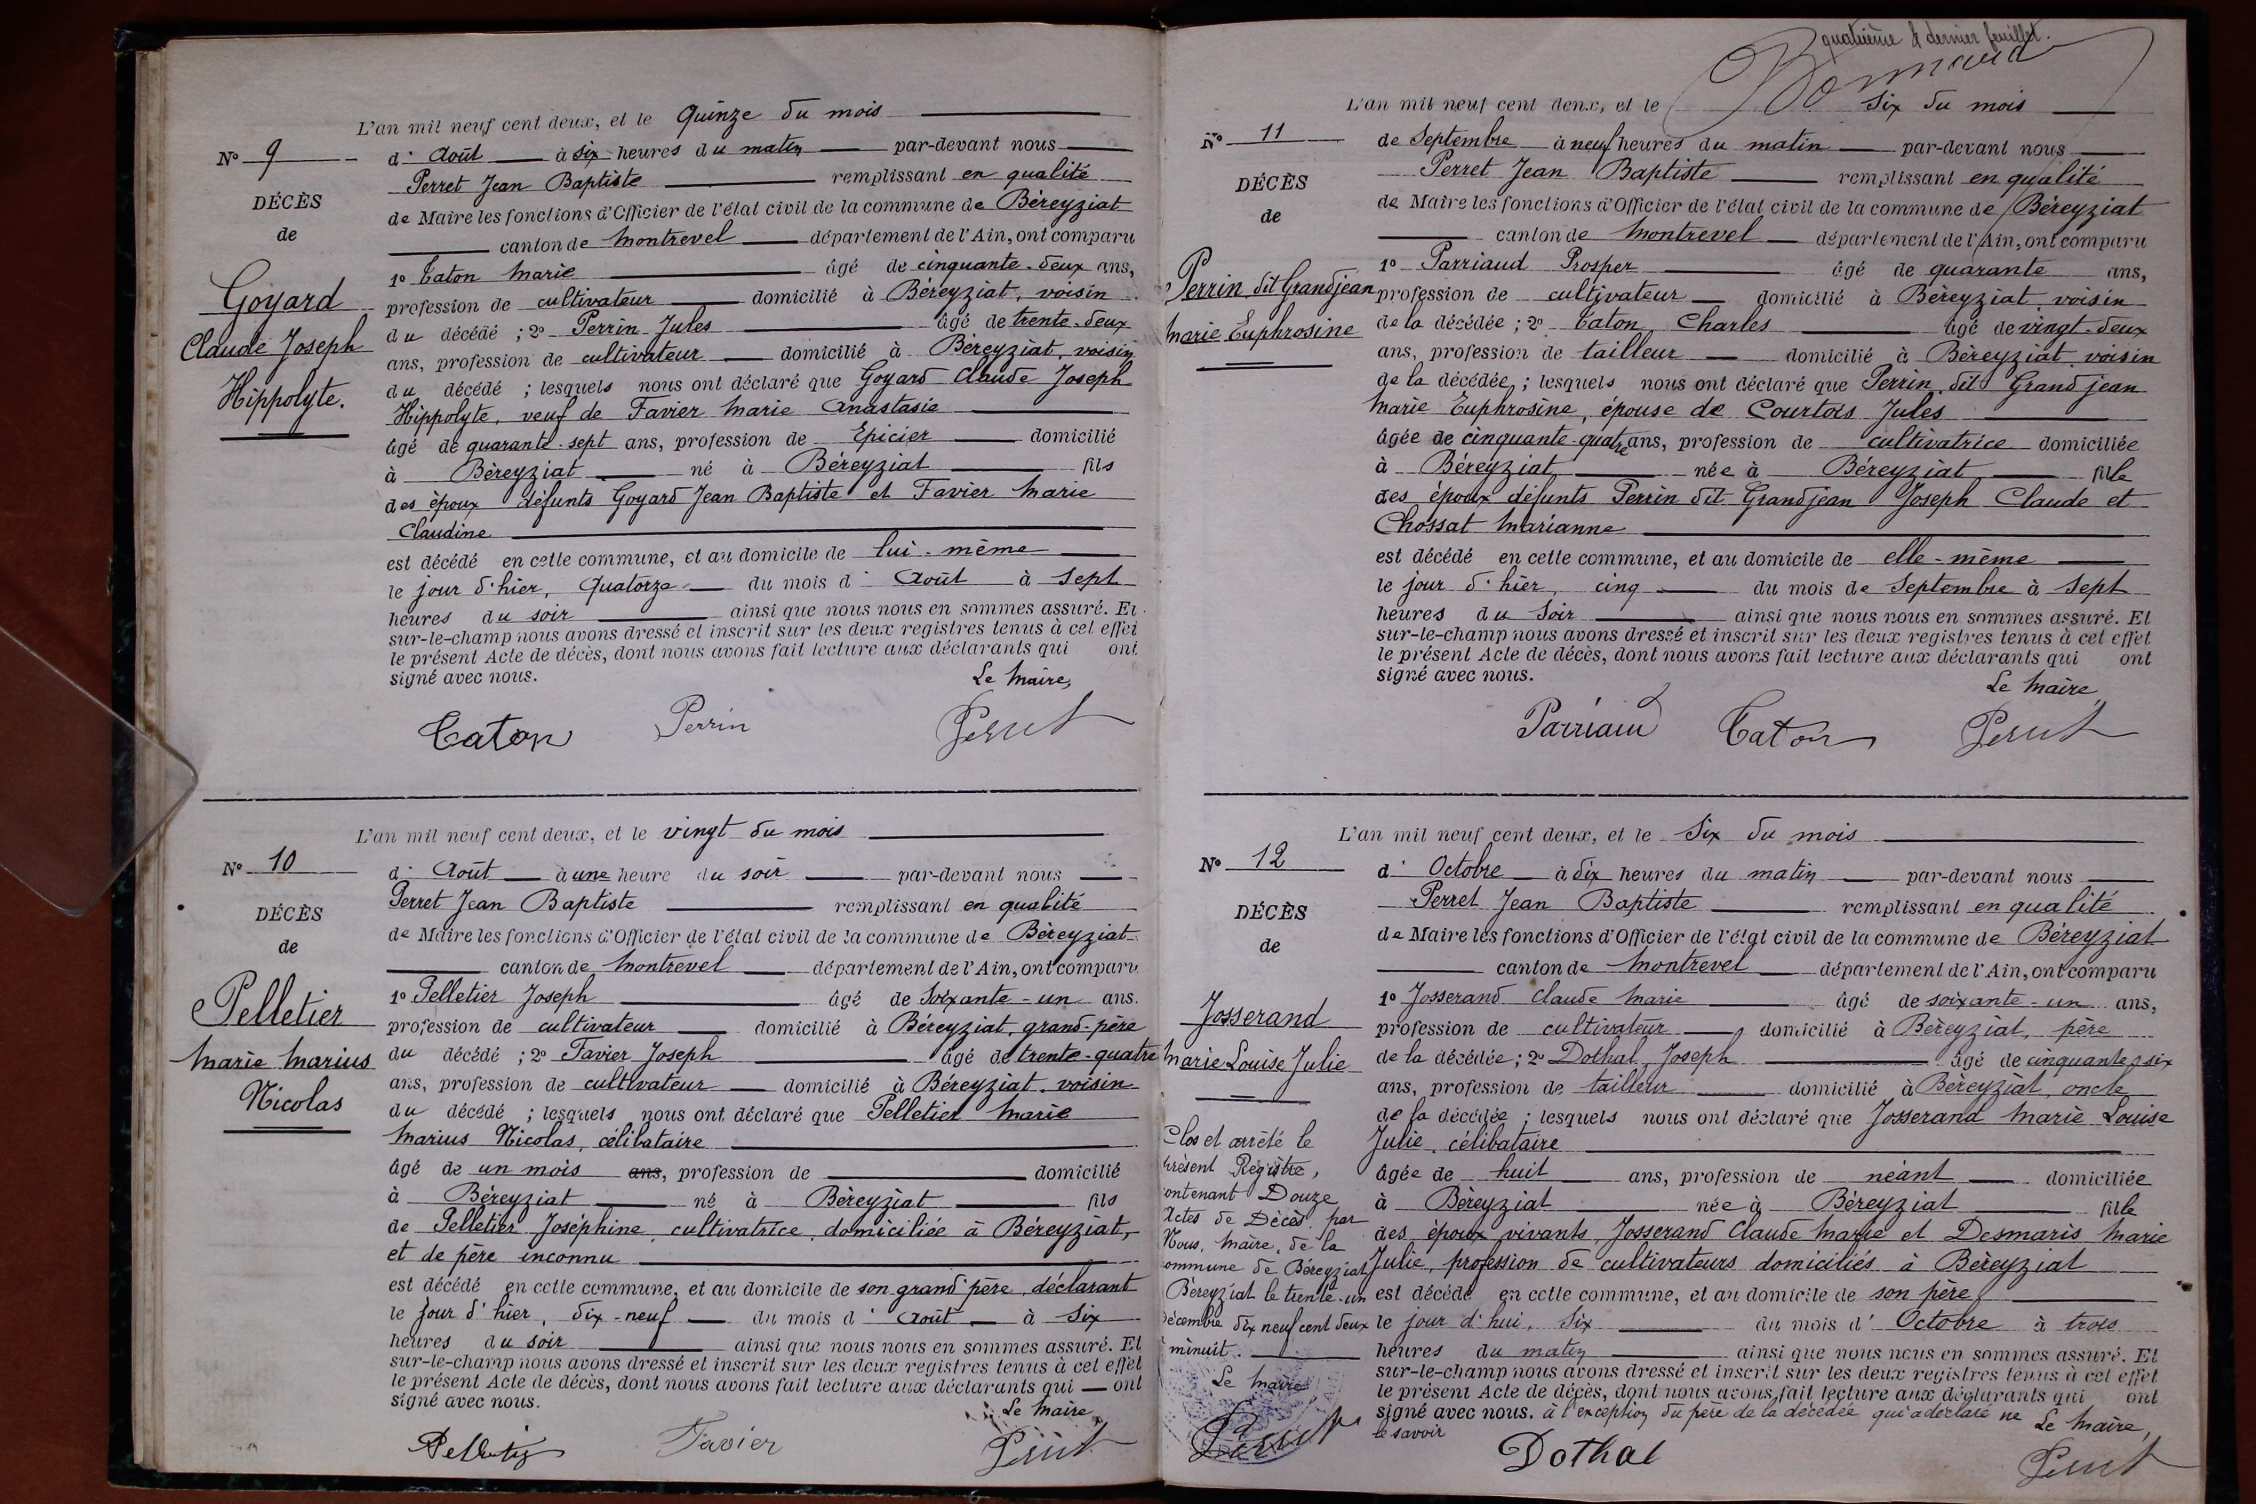 N° 9
DÉCÈS
de
Goyard
Claude Joseph
Hippolyte.
L'an mil neuf cent deux, et le quinze du mois
d' Août à six heures du matin par-devant nous
Perret Jean Baptiste remplissant en qualité
de Maire les fonctions d'Officier de l'état civil de la commune de Béreyziat
canton de Montrevel département de l'Ain, ont comparu
1° Caton Marie âgé de cinquante-deux ans,
profession de cultivateur domicilié à Béreyziat, voisin
du décédé ; 2° Perrin Jules âgé de trente-deux
ans, profession de cultivateur domicilié à Béreyziat, voisin
du décédé ; lesquels nous ont déclaré que Goyard Claude Joseph
Hippolyte, veuf de Favier Marie Anastasie
âgé de quarante-sept ans, profession de Epicier domicilié
à Béreyziat né à Béreyziat fils
des époux défunts Goyard Jean Baptiste et Favier Marie
Claudine
est décédé en cette commune, et au domicile de lui-même
le jour d'hier, quatorze du mois d' Août à sept
heures du soir ainsi que nous nous en sommes assuré. Et
sur-le-champ nous avons dressé et inscrit sur les deux registres tenus à cet effet
le présent Acte de décès, dont nous avons fait lecture aux déclarants qui ont
signé avec nous. Le Maire,
Caton Perrin Perret
N° 10
DÉCÈS
de
Pelletier
Marie Marius
Nicolas
L'an mil neuf cent deux, et le vingt du mois
d' Août à une heure du soir par-devant nous
Perret Jean Baptiste remplissant en qualité
de Maire les fonctions d'Officier de l'état civil de la commune de Béreyziat
canton de Montrevel département de l'Ain, ont comparu
1° Pelletier Joseph âgé de Soixante-un ans.
profession de cultivateur domicilié à Béreyziat, grand-père
du décédé ; 2° Favier Joseph âgé de trente-quatre
ans, profession de cultivateur domicilié à Béreyziat, voisin
du décédé ; lesquels nous ont déclaré que Pelletier Marie
Marius Nicolas, célibataire
âgé de un mois ans, profession de domicilié
à Béreyziat né à Béreyziat fils
de Pelletier Joséphine, cultivatrice, domiciliée à Béreyziat,
et de père inconnu
est décédé en cette commune, et au domicile de son grand'père, déclarant
le jour d'hier, dix-neuf du mois d' Août à six
heures du soir ainsi que nous nous en sommes assuré. Et
sur-le-champ nous avons dressé et inscrit sur les deux registres tenus à cet effet
le présent Acte de décès, dont nous avons fait lecture aux déclarants qui ont
signé avec nous. Le Maire,
Pelletier Favier Perret
quatrième & dernier feuillet.
N° 11
DÉCÈS
de
Perrin dit Grandjean
Marie Euphrosine
L'an mil neuf cent deux, et le Six du mois
de Septembre à neuf heures du matin par-devant nous
Perret Jean Baptiste remplissant en qualité
de Maire les fonctions d'Officier de l'état civil de la commune de Béreyziat
canton de Montrevel département de l'Ain, ont comparu
1° Parriaud Prosper âgé de quarante ans,
profession de cultivateur domicilié à Béreyziat, voisin
de la décédée ; 2° Caton Charles âgé de vingt-deux
ans, profession de tailleur domicilié à Béreyziat, voisin
de la décédée ; lesquels nous ont déclaré que Perrin dit Grandjean
Marie Euphrosine, épouse de Courtois Jules
âgée de cinquante-quatre ans, profession de cultivatrice domiciliée
à Béreyziat née à Béreyziat fille
des époux défunts Perrin dit Grandjean Joseph Claude et
Chossat Marianne
est décédé en cette commune, et au domicile de elle-même
le jour d'hier, cinq du mois de Septembre à Sept
heures du Soir ainsi que nous nous en sommes assuré. Et
sur-le-champ nous avons dressé et inscrit sur les deux registres tenus à cet effet
le présent Acte de décès, dont nous avons fait lecture aux déclarants qui ont
signé avec nous. Le Maire,
Parriaud Caton Perret
N° 12
DÉCÈS
de
Josserand
Marie Louise Julie
L'an mil neuf cent deux, et le Six du mois
d' Octobre à dix heures du matin par-devant nous
Perret Jean Baptiste remplissant en qualité
de Maire les fonctions d'Officier de l'état civil de la commune de Béreyziat
canton de Montrevel département de l'Ain, ont comparu
1° Josserand Claude Marie âgé de soixante-un ans,
profession de cultivateur domicilié à Béreyziat, père
de la décédée ; 2° Dothal Joseph âgé de cinquante-six
ans, profession de tailleur domicilié à Béreyziat, oncle
de la décédée ; lesquels nous ont déclaré que Josserand Marie Louise
Julie, célibataire
âgée de huit ans, profession de néant domiciliée
à Béreyziat née à Béreyziat fille
des époux vivants, Josserand Claude Marie et Desmaris Marie
Julie, profession de cultivateurs domiciliés à Béreyziat
est décédé en cette commune, et au domicile de son père
le jour d'hui, Six du mois d' Octobre à trois
heures du matin ainsi que nous nous en sommes assuré. Et
sur-le-champ nous avons dressé et inscrit sur les deux registres tenus à cet effet
le présent Acte de décès, dont nous avons fait lecture aux déclarants qui ont
signé avec nous. à l'exception du père de la décédée qui a déclaré ne
le savoir Le Maire,
Dothal Perret
Clos et arrêté le
présent Registre,
contenant Douze
Actes de Décès, par
Nous, Maire, de la
commune de Béreyziat
Béreyziat le trente-un
décembre dix neuf cent deux
minuit.
Le Maire
Perret